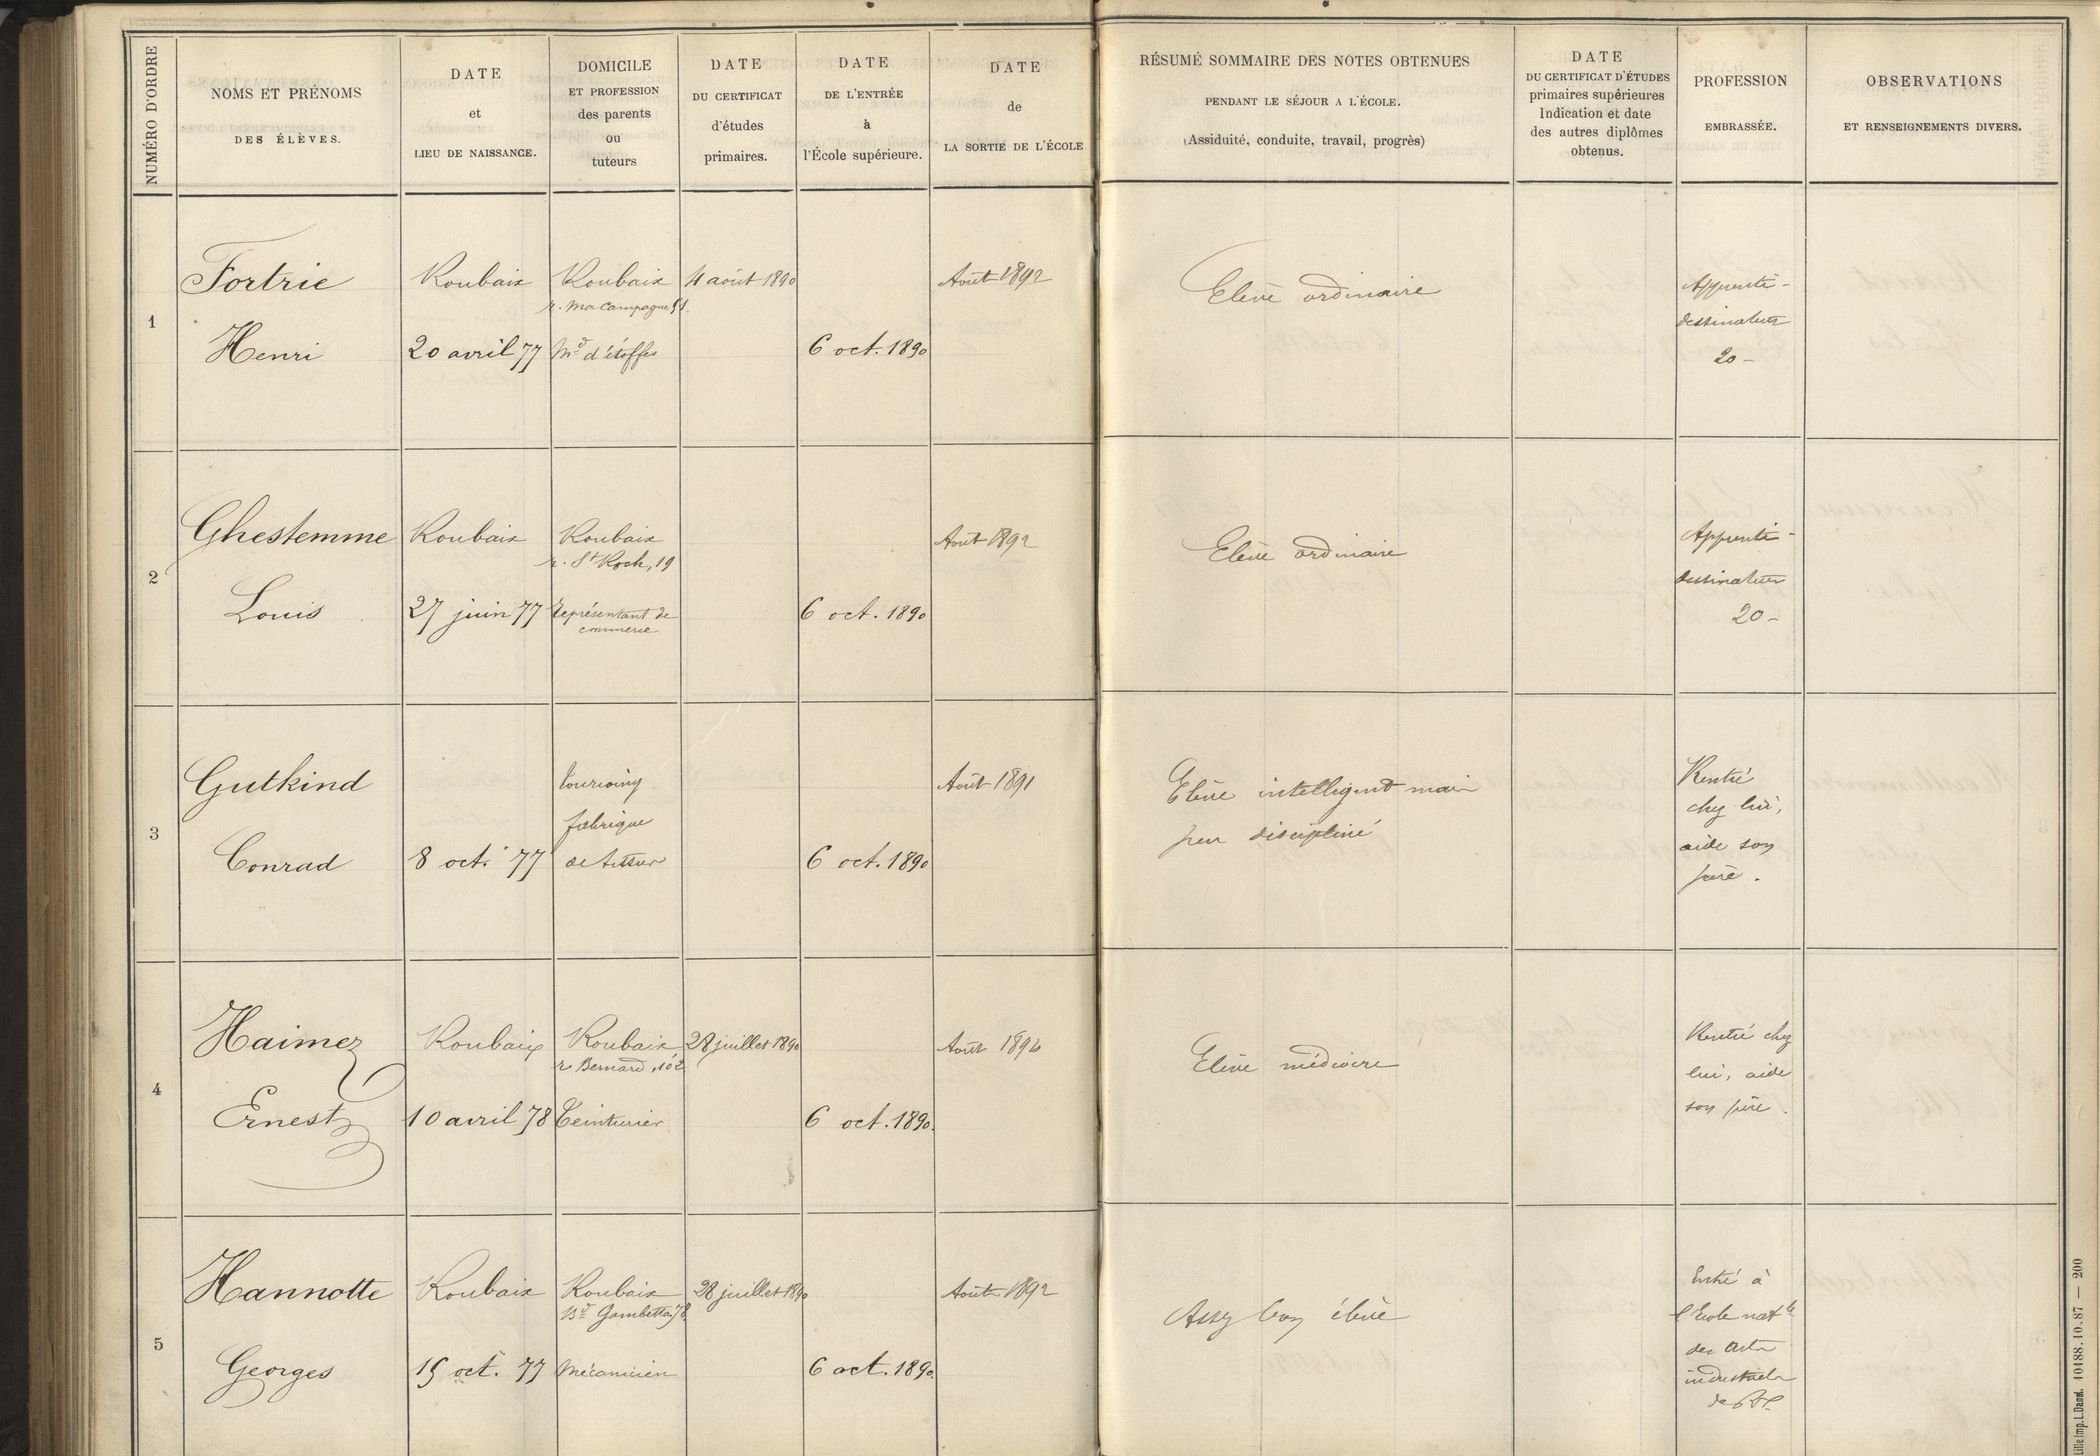 NUMÉRO D'ORDRE
NOMS ET PRÉNOMS
DES ÉLÈVES.
DATE
et
LIEU DE NAISSANCE.
DOMICILE
ET PROFESSION
des parents
ou
tuteurs
DATE
DU CERTIFICAT
d'études
primaires.
DATE
DE L'ENTRÉE
à
l'École supérieure.
DATE
de
LA SORTIE DE L'ÉCOLE
RÉSUMÉ SOMMAIRE DES NOTES OBTENUES
PENDANT LE SÉJOUR A L'ÉCOLE.
(Assiduité, conduite, travail, progrès)
DATE
DU CERTIFICAT D'ÉTUDES
primaires supérieures
Indication et date
des autres diplômes
obtenus.
PROFESSION
EMBRASSÉE.
OBSERVATIONS
ET RENSEIGNEMENTS DIVERS.
1
Fortrie
Henri
Roubaix
20 avril 77
Roubaix
r. ma Campagne, 51.
Md d'étoffes
4 août 1890
6 oct. 1890
Août 1892
Elève ordinaire
Apprenti-
dessinateur
20 -
2
Ghestemme
Louis
Roubaix
27 juin 77
Roubaix
r. St Roch, 19
Représentant de
commerce
6 oct. 1890
Août 1892
Elève ordinaire
Apprenti-
dessinateur
20 -
3
Gutkind
Conrad
8 oct. 77
Tourcoing
fabrique
de tissus
6 oct. 1890
Août 1891
Elève intelligent mais
peu discipliné
Rentré
chez lui,
aide son
père.
4
Haimez
Ernest
Roubaix
10 avril 78
Roubaix
r. Bernard, 102
Teinturier
28 juillet 1890
6 oct. 1890.
Août
Elève médiocre
Rentré chez
lui, aide
son père.
5
Hannotte
Georges
Roubaix
15 oct. 77
Roubaix
Bd Gambetta 78
Mécanicien
28 juillet 1890
6 oct. 1890.
Août 1892
Assez bon élève
Entré à
l'Ecole natle
des Arts
industriels
de Rx
Lille Imp. L. Danel. 10188.10.87 — 200